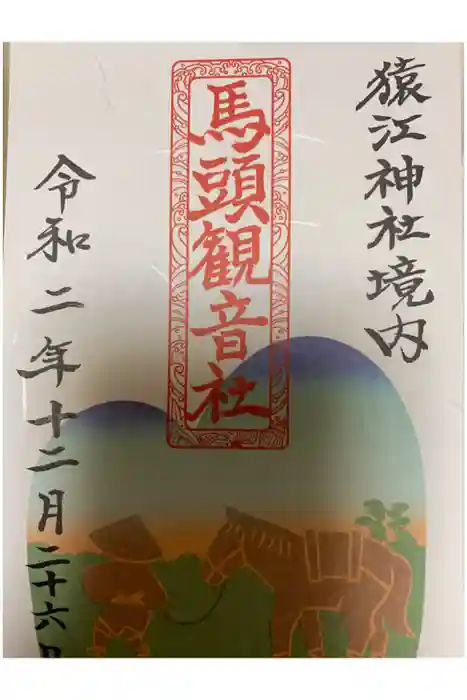 猿江神社境内
馬頭観音社
令和二年十二月二十六日